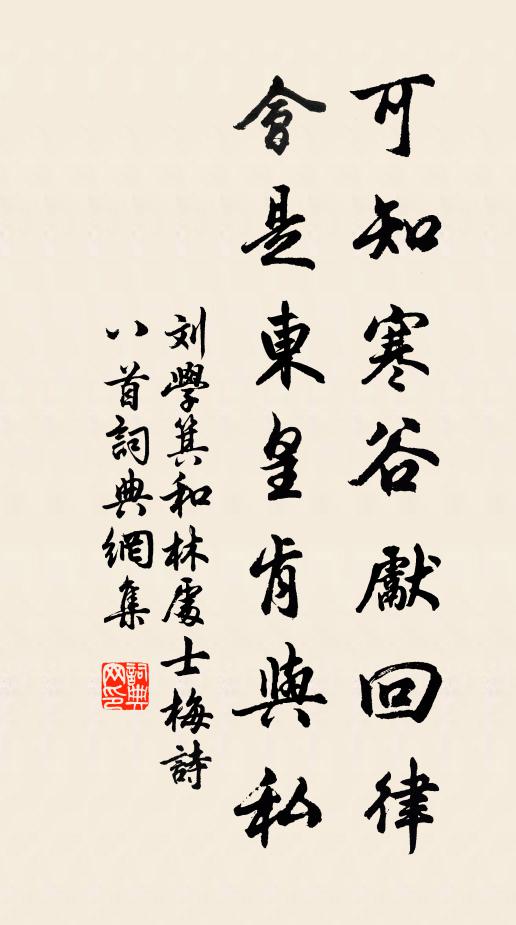 可知寒谷獻回律
會是東皇肯與私
刘學箕和林處士梅詩
八首詞典網集
詞典网印